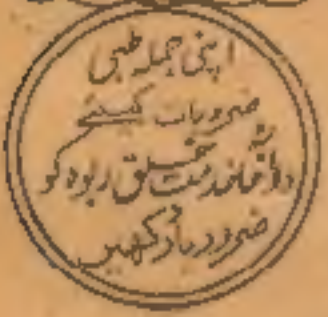 اپنی جملہ طبی
ضروریات کیلئے
دواخانہ خدمت خلق ربوہ کو
ضرور یاد رکھیں